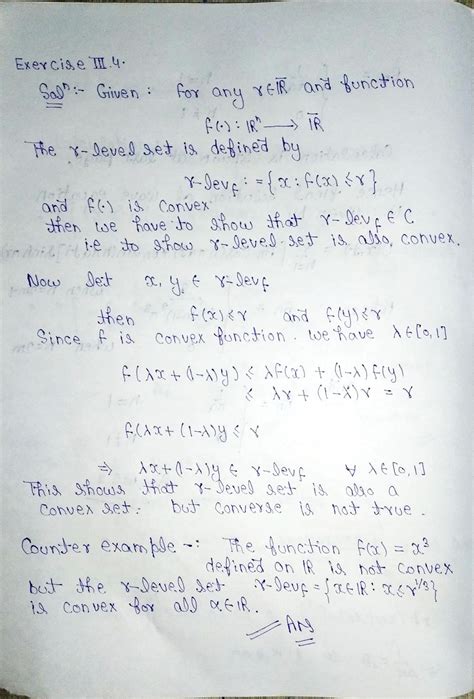 Exercise III.4.
Solⁿ:- Given : for any r∈R̅ and function
f(·): Rⁿ → R̅
The r-level set is defined by
r-lev_f := {x : f(x) ≤ r}
and f(·) is convex
then we have to show that r-lev_f ∈ C
i.e to show r-level set is also convex.
Now let x, y ∈ r-lev_f
then f(x) ≤ r and f(y) ≤ r
Since f is convex function. we have λ∈[0,1]
f(λx + (1-λ)y) ≤ λf(x) + (1-λ)f(y)
≤ λr + (1-λ)r = r
f(λx + (1-λ)y ≤ r
⇒ λx+(1-λ)y ∈ r-lev_f ∀ λ∈[0,1]
This shows that r-level set is also a
convex set. but converse is not true.
Counter example -: The function f(x) = x³
defined on IR is not convex
but the r-level set r-lev_f = {x∈IR : x ≤ r^{1/3}}
is convex for all α∈IR.
Ans